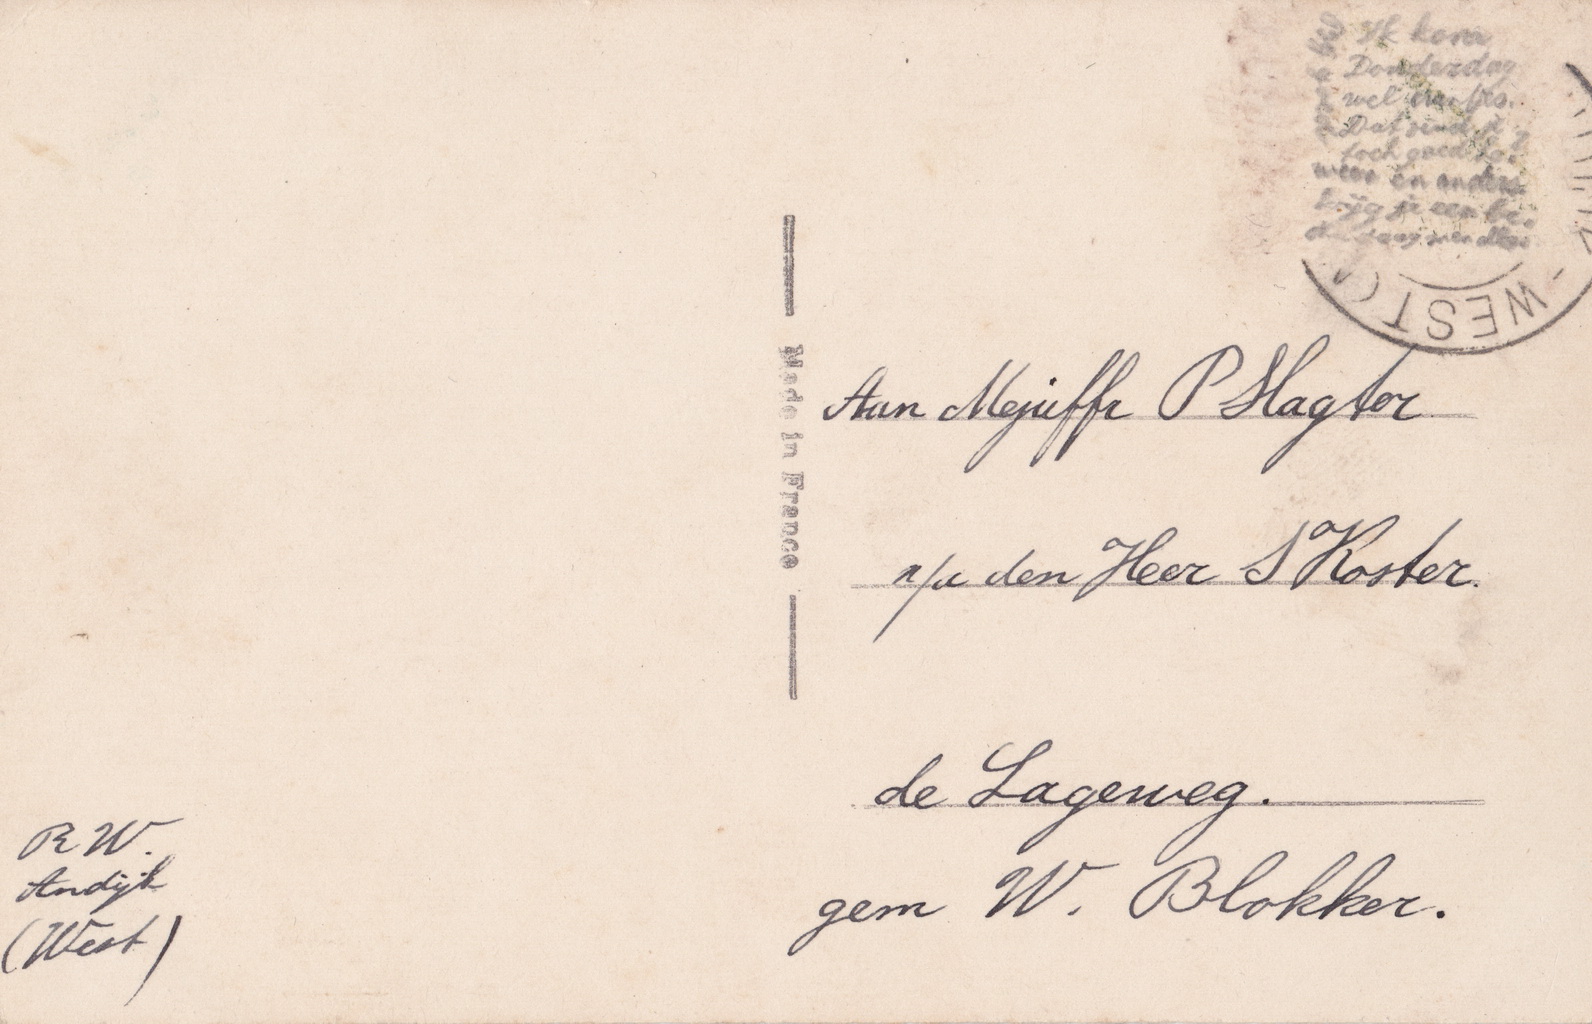 Ik kom
Donderdag
wel
Dat
toch goed
weer en anders
krijg je een
WEST (
Made in France
Aan Mejuffr P Slagter
p/a den Heer S Koster.
de Lageweg.
gem W. Blokker.
R W.
Andijk
(West)